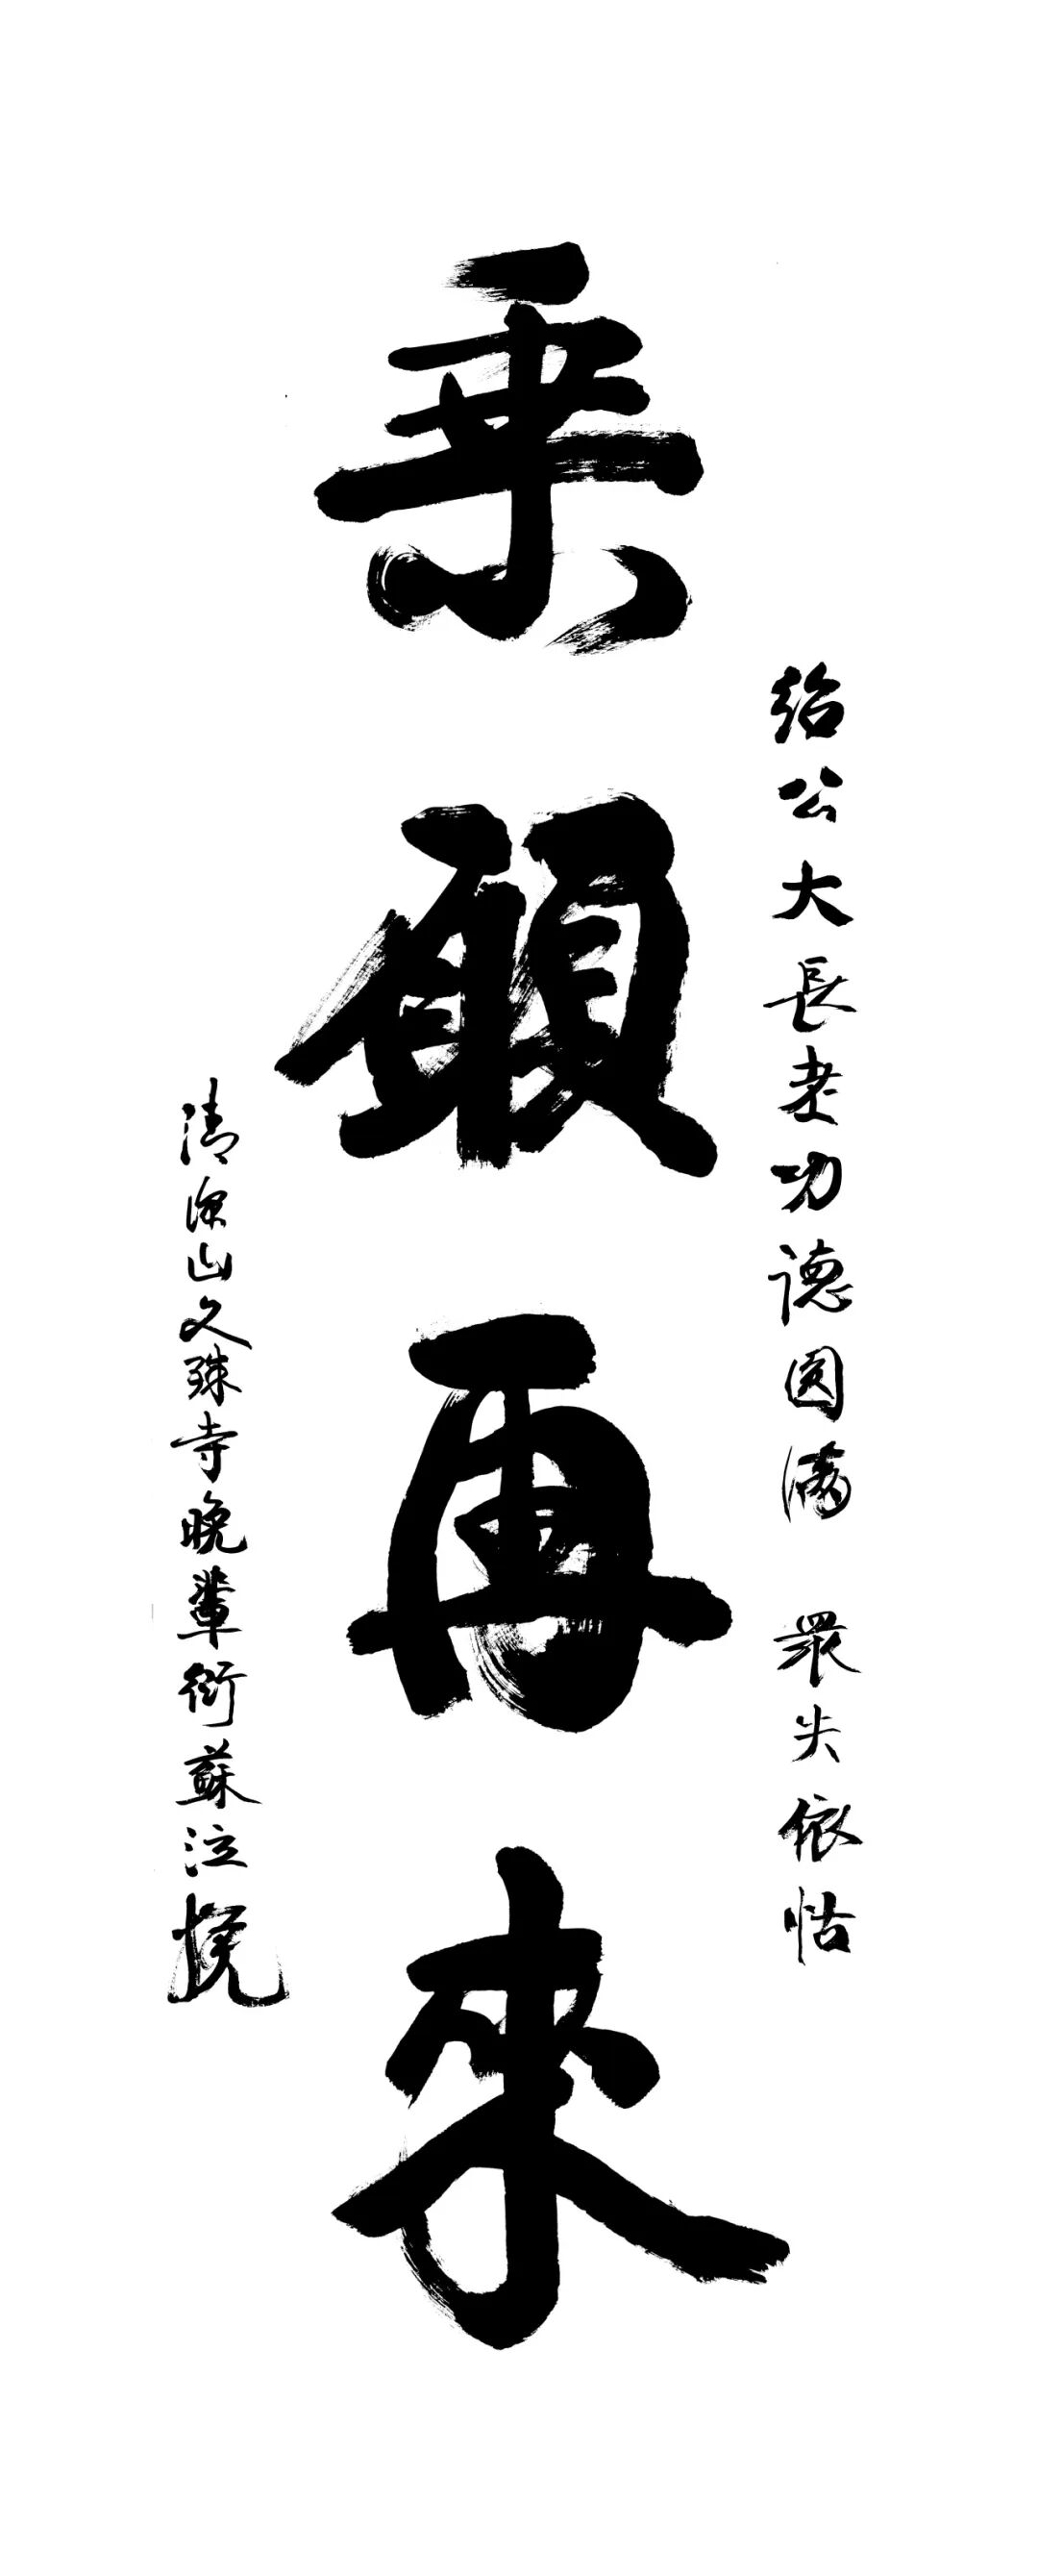 紹公大長老功德圆满 眾失依怙
乗願再來
清凉山文殊寺晚輩衍蘇泣挽